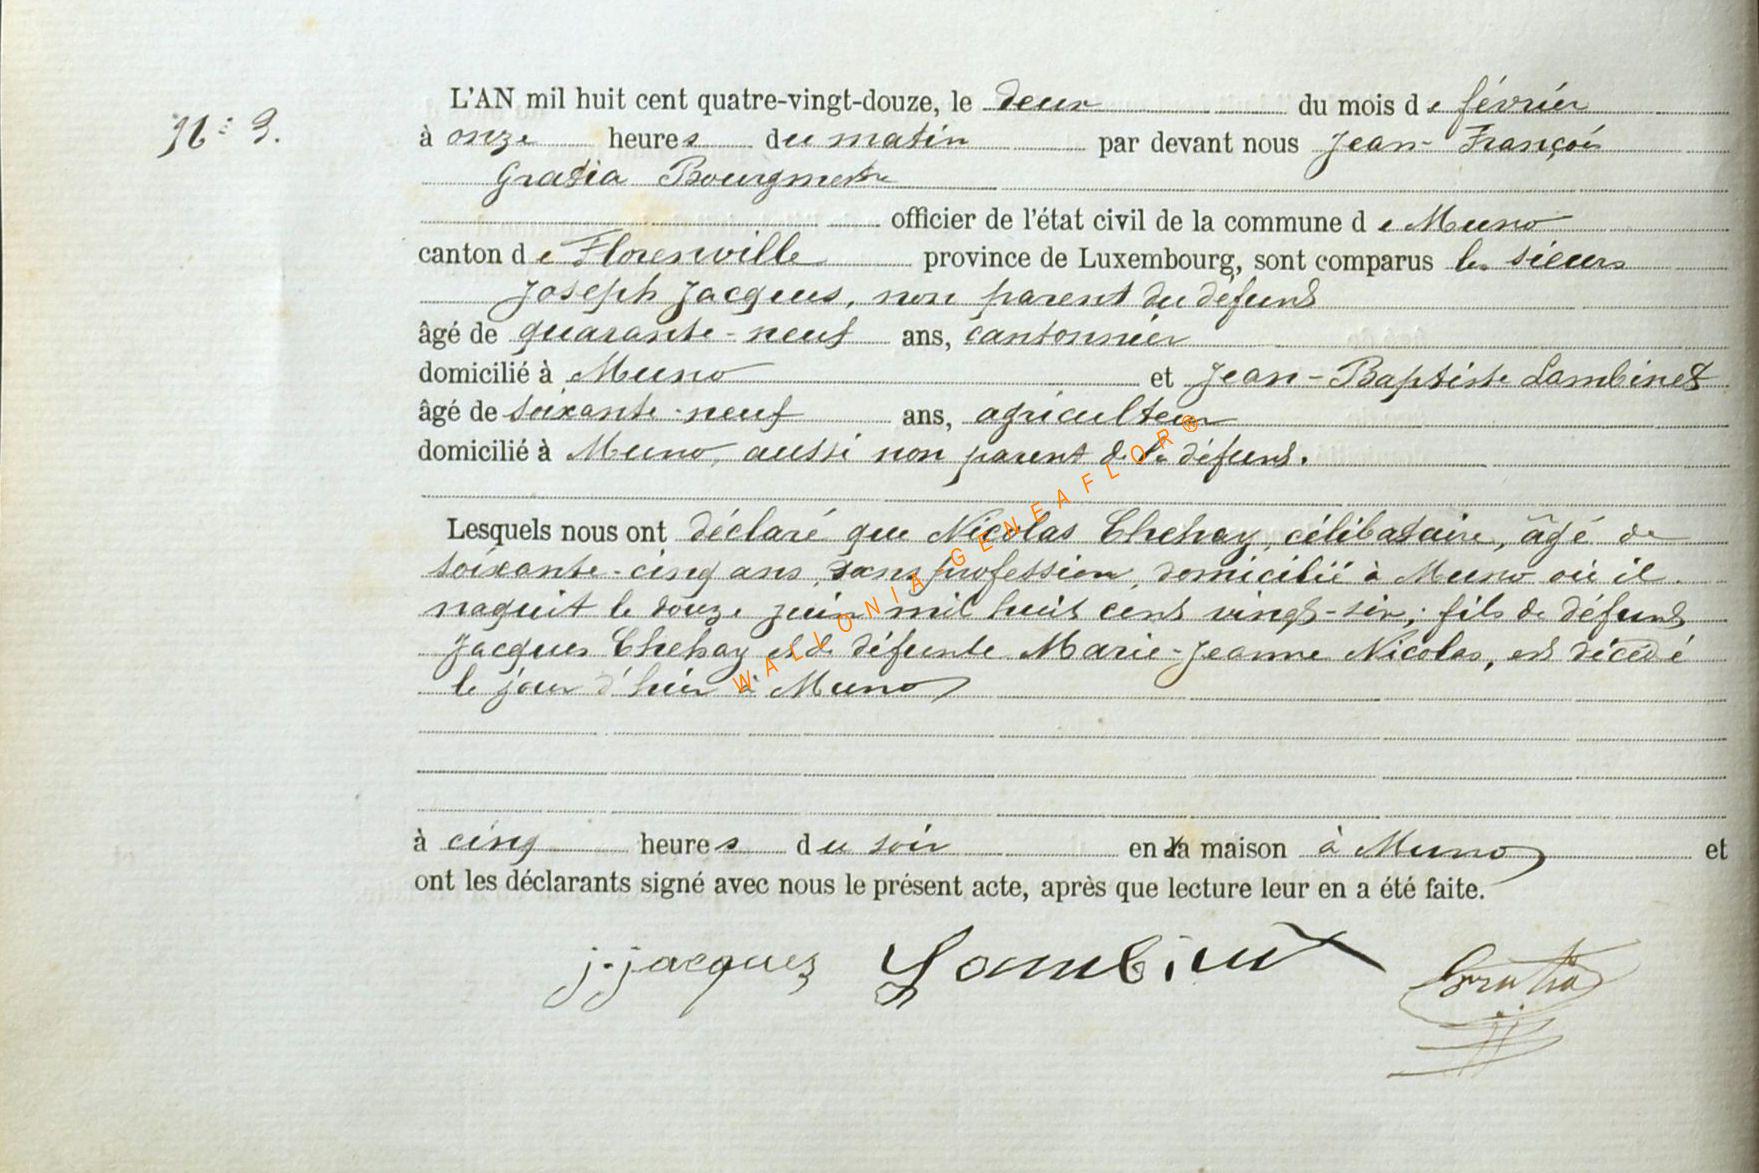 N° 3.
L'AN mil huit cent quatre-vingt-douze, le deux du mois de février
à onze heures du matin par devant nous Jean-François
Gratia Bourgmestre
officier de l'état civil de la commune de Muno
canton de Florenville province de Luxembourg, sont comparus les sieurs
Joseph Jacques, non parent du défunt
âgé de quarante-neuf ans, cantonnier
domicilié à Muno et Jean-Baptiste Lambinet
âgé de soixante-neuf ans, agriculteur
domicilié à Muno, aussi non parent de le défunt.
Lesquels nous ont déclaré que Nicolas Chehay, célibataire, âgé de
soixante-cinq ans, sans profession, domicilié à Muno où il
naquit le douze juin mil huit cent vingt-six; fils de défunt
Jacques Chehay et de défunte Marie-Jeanne Nicolas, est décédé
le jour d'hier à Muno
à cinq heures du soir en sa maison à Muno et
ont les déclarants signé avec nous le présent acte, après que lecture leur en a été faite.
j. jacques Lambinet Gratia
WALLONIA-GENEAFLOR®